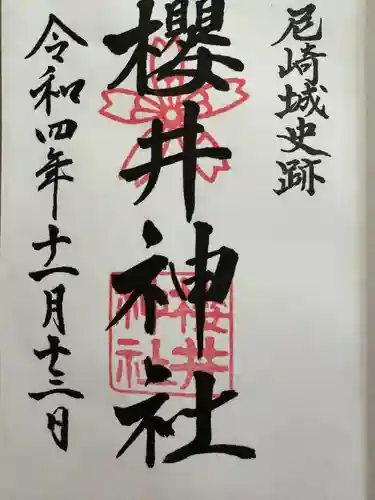 尼崎城史跡
櫻井神社
櫻井
神社
令和四年十一月十三日